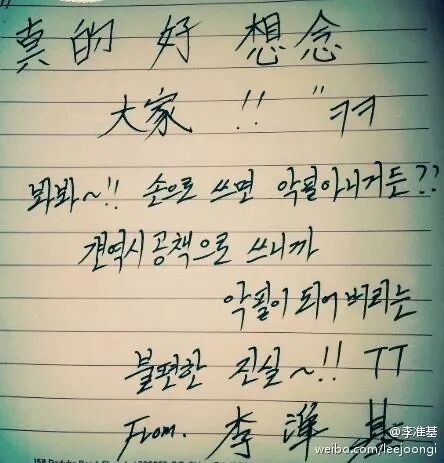 真的 好 想念
大家 !! "ㅋㅋ
봐봐~!! 손으로 쓰면 악필아니거든??
공책으로 쓰니까
악필이 되어버리는
불편한 진실~!! TT
From. 李 準 基
@李准基
weibo.com/leejoongi